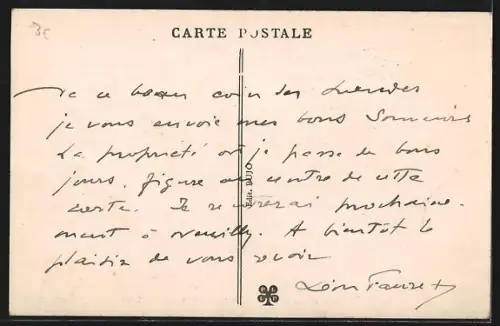 3€
CARTE POSTALE
De ce beau coin des Landes
je vous envoie mes bons Souvenirs
La propriété où je passe de bons
jours, figure au centre de cette
carte. Je rentrerai prochaine-
ment à Neuilly. A bientôt le
plaisir de vous revoir
Léon Faure
Edit. DUJO